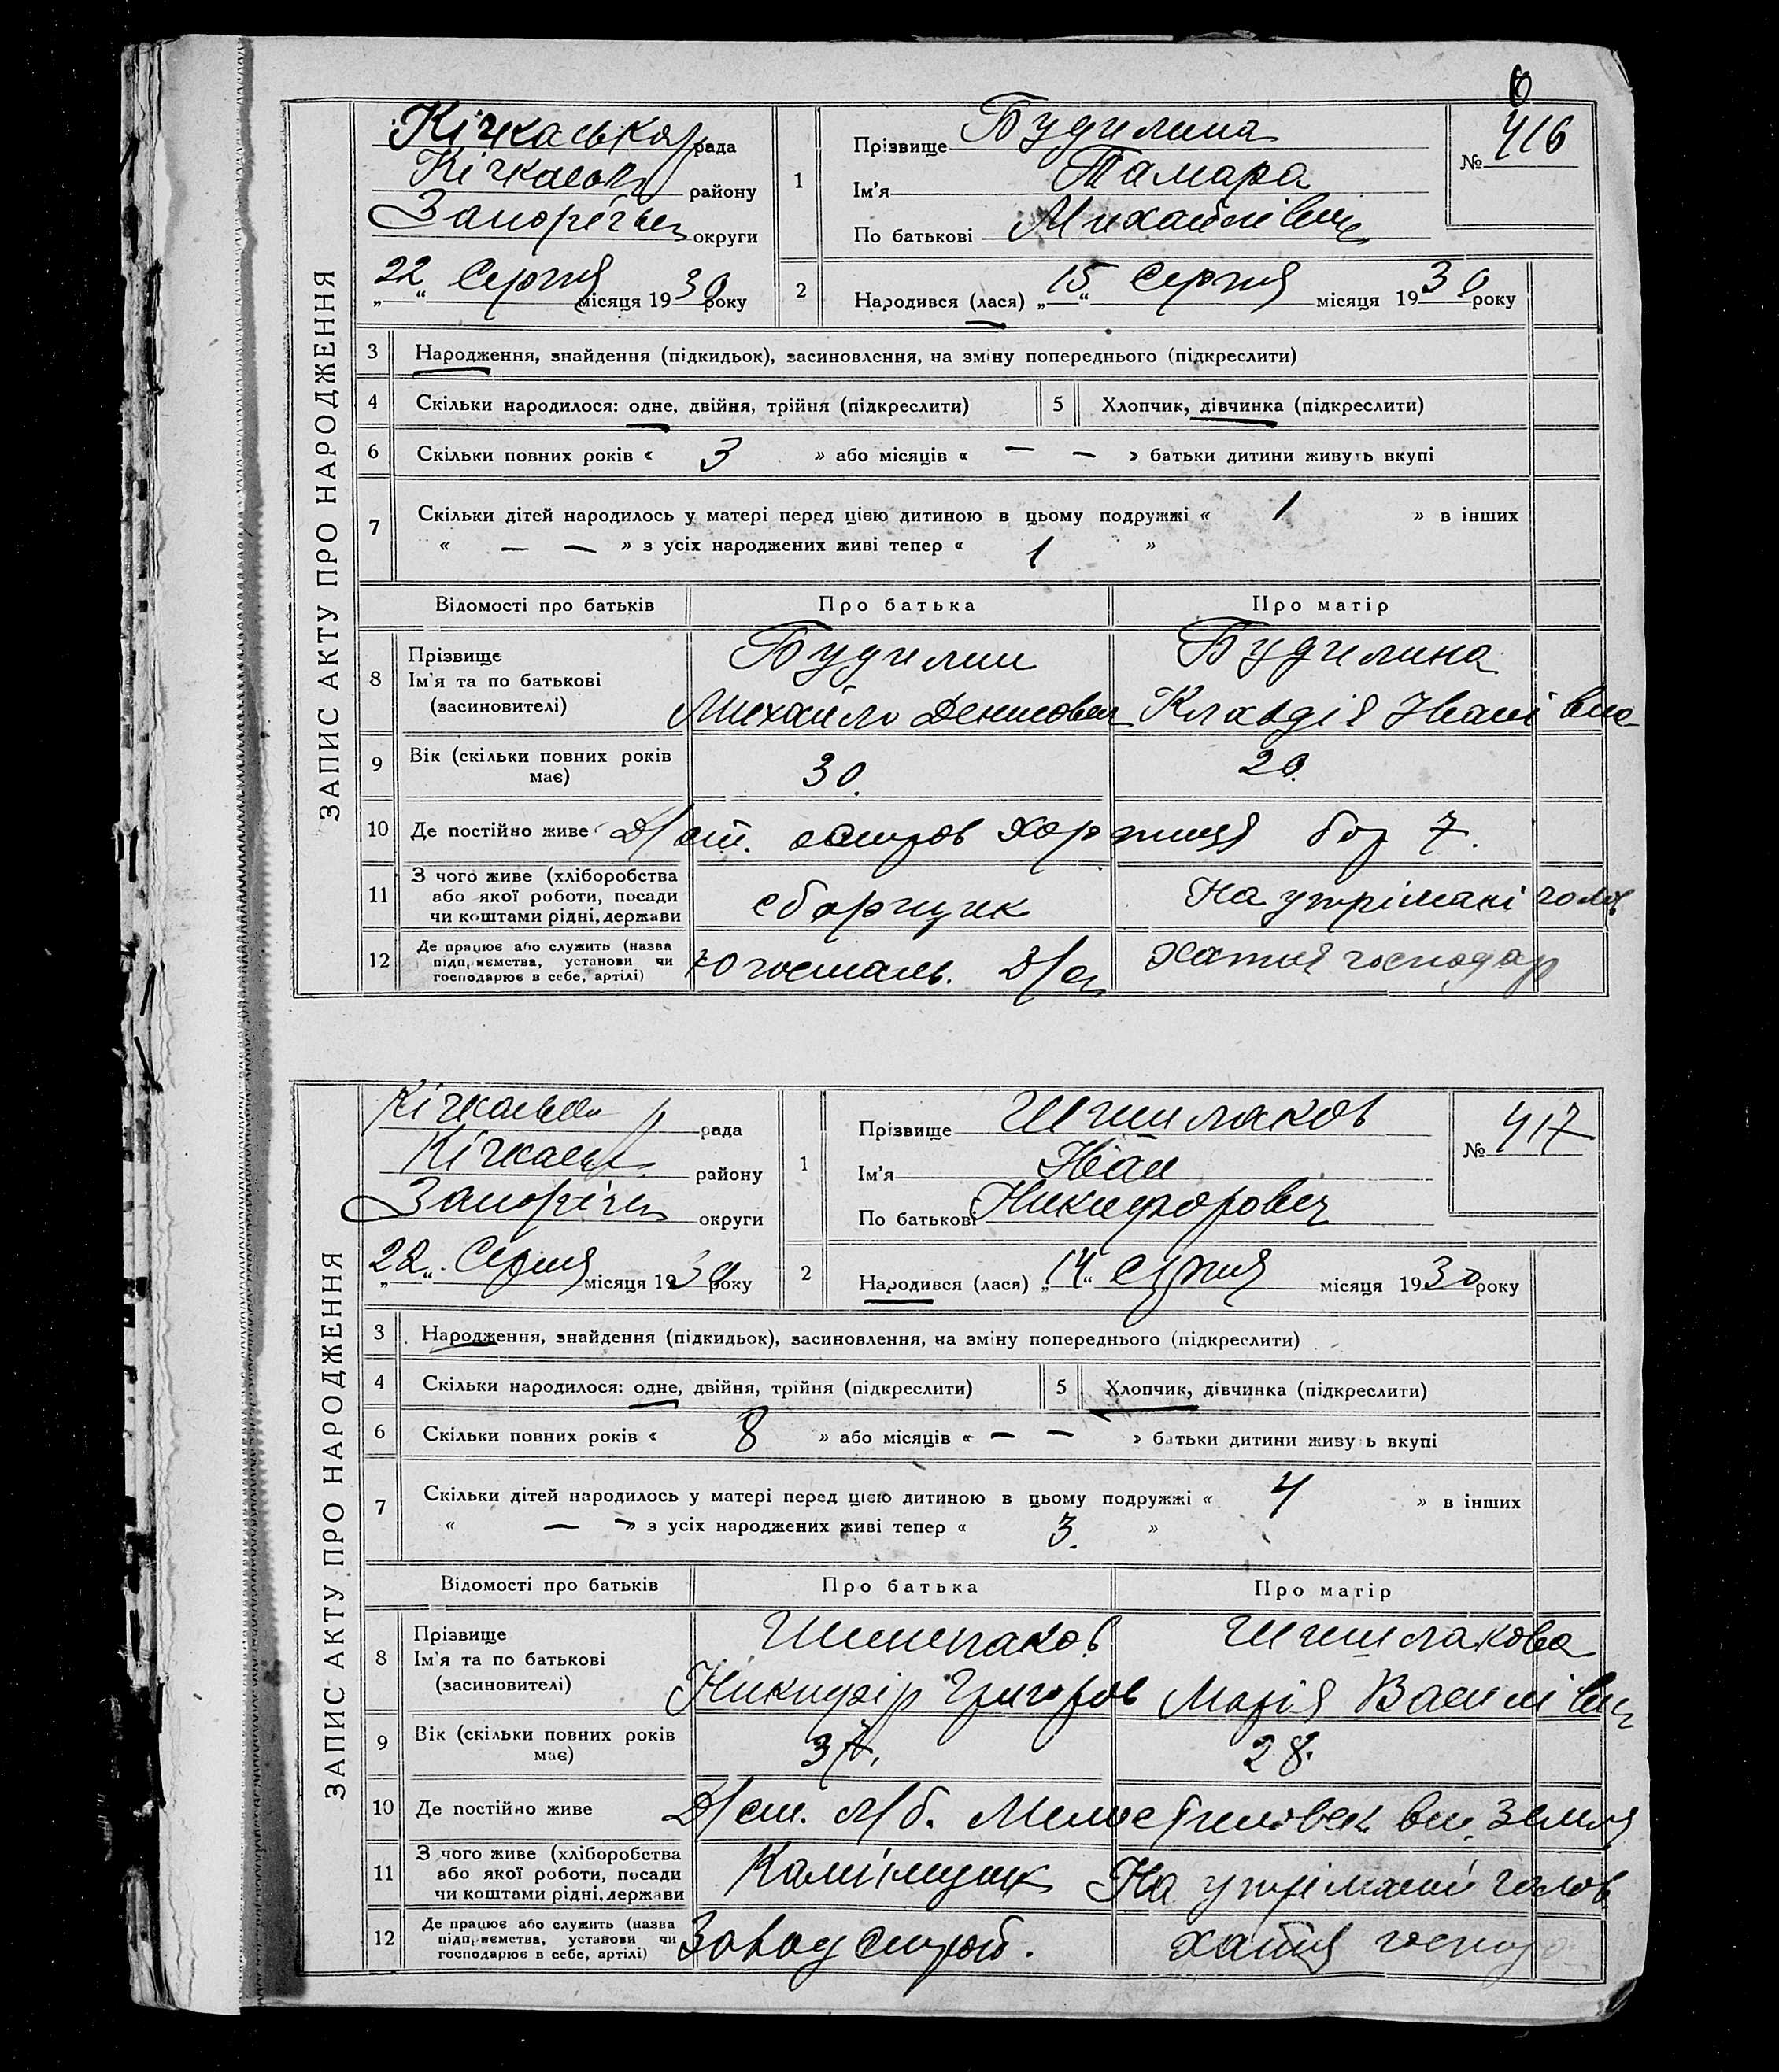 ЗАПИС АКТУ ПРО НАРОДЖЕННЯ
Кічкаська рада
Кічкаськ району
Запоріськ округи
„22“ Серпня місяця 1930 року
1
Прізвище Будилина
Ім'я Тамара
По батькові Михайлівна
№ 416
2
Народився (лася) „15“ Серпня місяця 1930 року
3 Народження, знайдення (підкидьок), засиновлення, на зміну попереднього (підкреслити)
4 Скільки народилося: одне, двійня, трійня (підкреслити) 5 Хлопчик, дівчинка (підкреслити)
6 Скільки повних років « 3 » або місяців « — — » батьки дитини живуть вкупі
7 Скільки дітей народилось у матері перед цією дитиною в цьому подружжі « 1 » в інших
« — — » з усіх народжених живі тепер « 1 »
Відомості про батьків Про батька Про матір
8 Прізвище Ім'я та по батькові (засиновителі)
Будилин Будилина
Михайло Денисович Клавдія Іванівна
9 Вік (скільки повних років має) 30. 20.
10 Де постійно живе Д/ст. остров Хортиця бар 7.
11 З чого живе (хліборобства або якої роботи, посади чи коштами рідні, держави
сборщик На утрімані голов
12 Де працює або служить (назва підприємства, установи чи господарює в себе, артілі)
Югосталь. Д/ст Хатня господар
ЗАПИС АКТУ ПРО НАРОДЖЕННЯ
Кічкаська р рада
Кічкаськ району
Запорізьк округи
„22“ Серпня місяця 1930 року
1
Прізвище Шишлаков
Ім'я Іван
По батькові Никифорович
№ 417
2
Народився (лася) „14“ Серпня місяця 1930 року
3 Народження, знайдення (підкидьок), засиновлення, на зміну попереднього (підкреслити)
4 Скільки народилося: одне, двійня, трійня (підкреслити) 5 Хлопчик, дівчинка (підкреслити)
6 Скільки повних років « 8 » або місяців « — — » батьки дитини живуть вкупі
7 Скільки дітей народилось у матері перед цією дитиною в цьому подружжі « 4 » в інших
« — — » з усіх народжених живі тепер « 3. »
Відомості про батьків Про батька Про матір
8 Прізвище Ім'я та по батькові (засиновителі)
Шишлаков Шишлакова
Никифір Григоров Марія Василівн
9 Вік (скільки повних років має) 37. 28.
10 Де постійно живе Д/ст. Л/б. земля
11 З чого живе (хліборобства або якої роботи, посади чи коштами рідні, держави
Камінщик На утрімані голов
12 Де працює або служить (назва підприємства, установи чи господарює в себе, артілі)
Завод Хатня господ